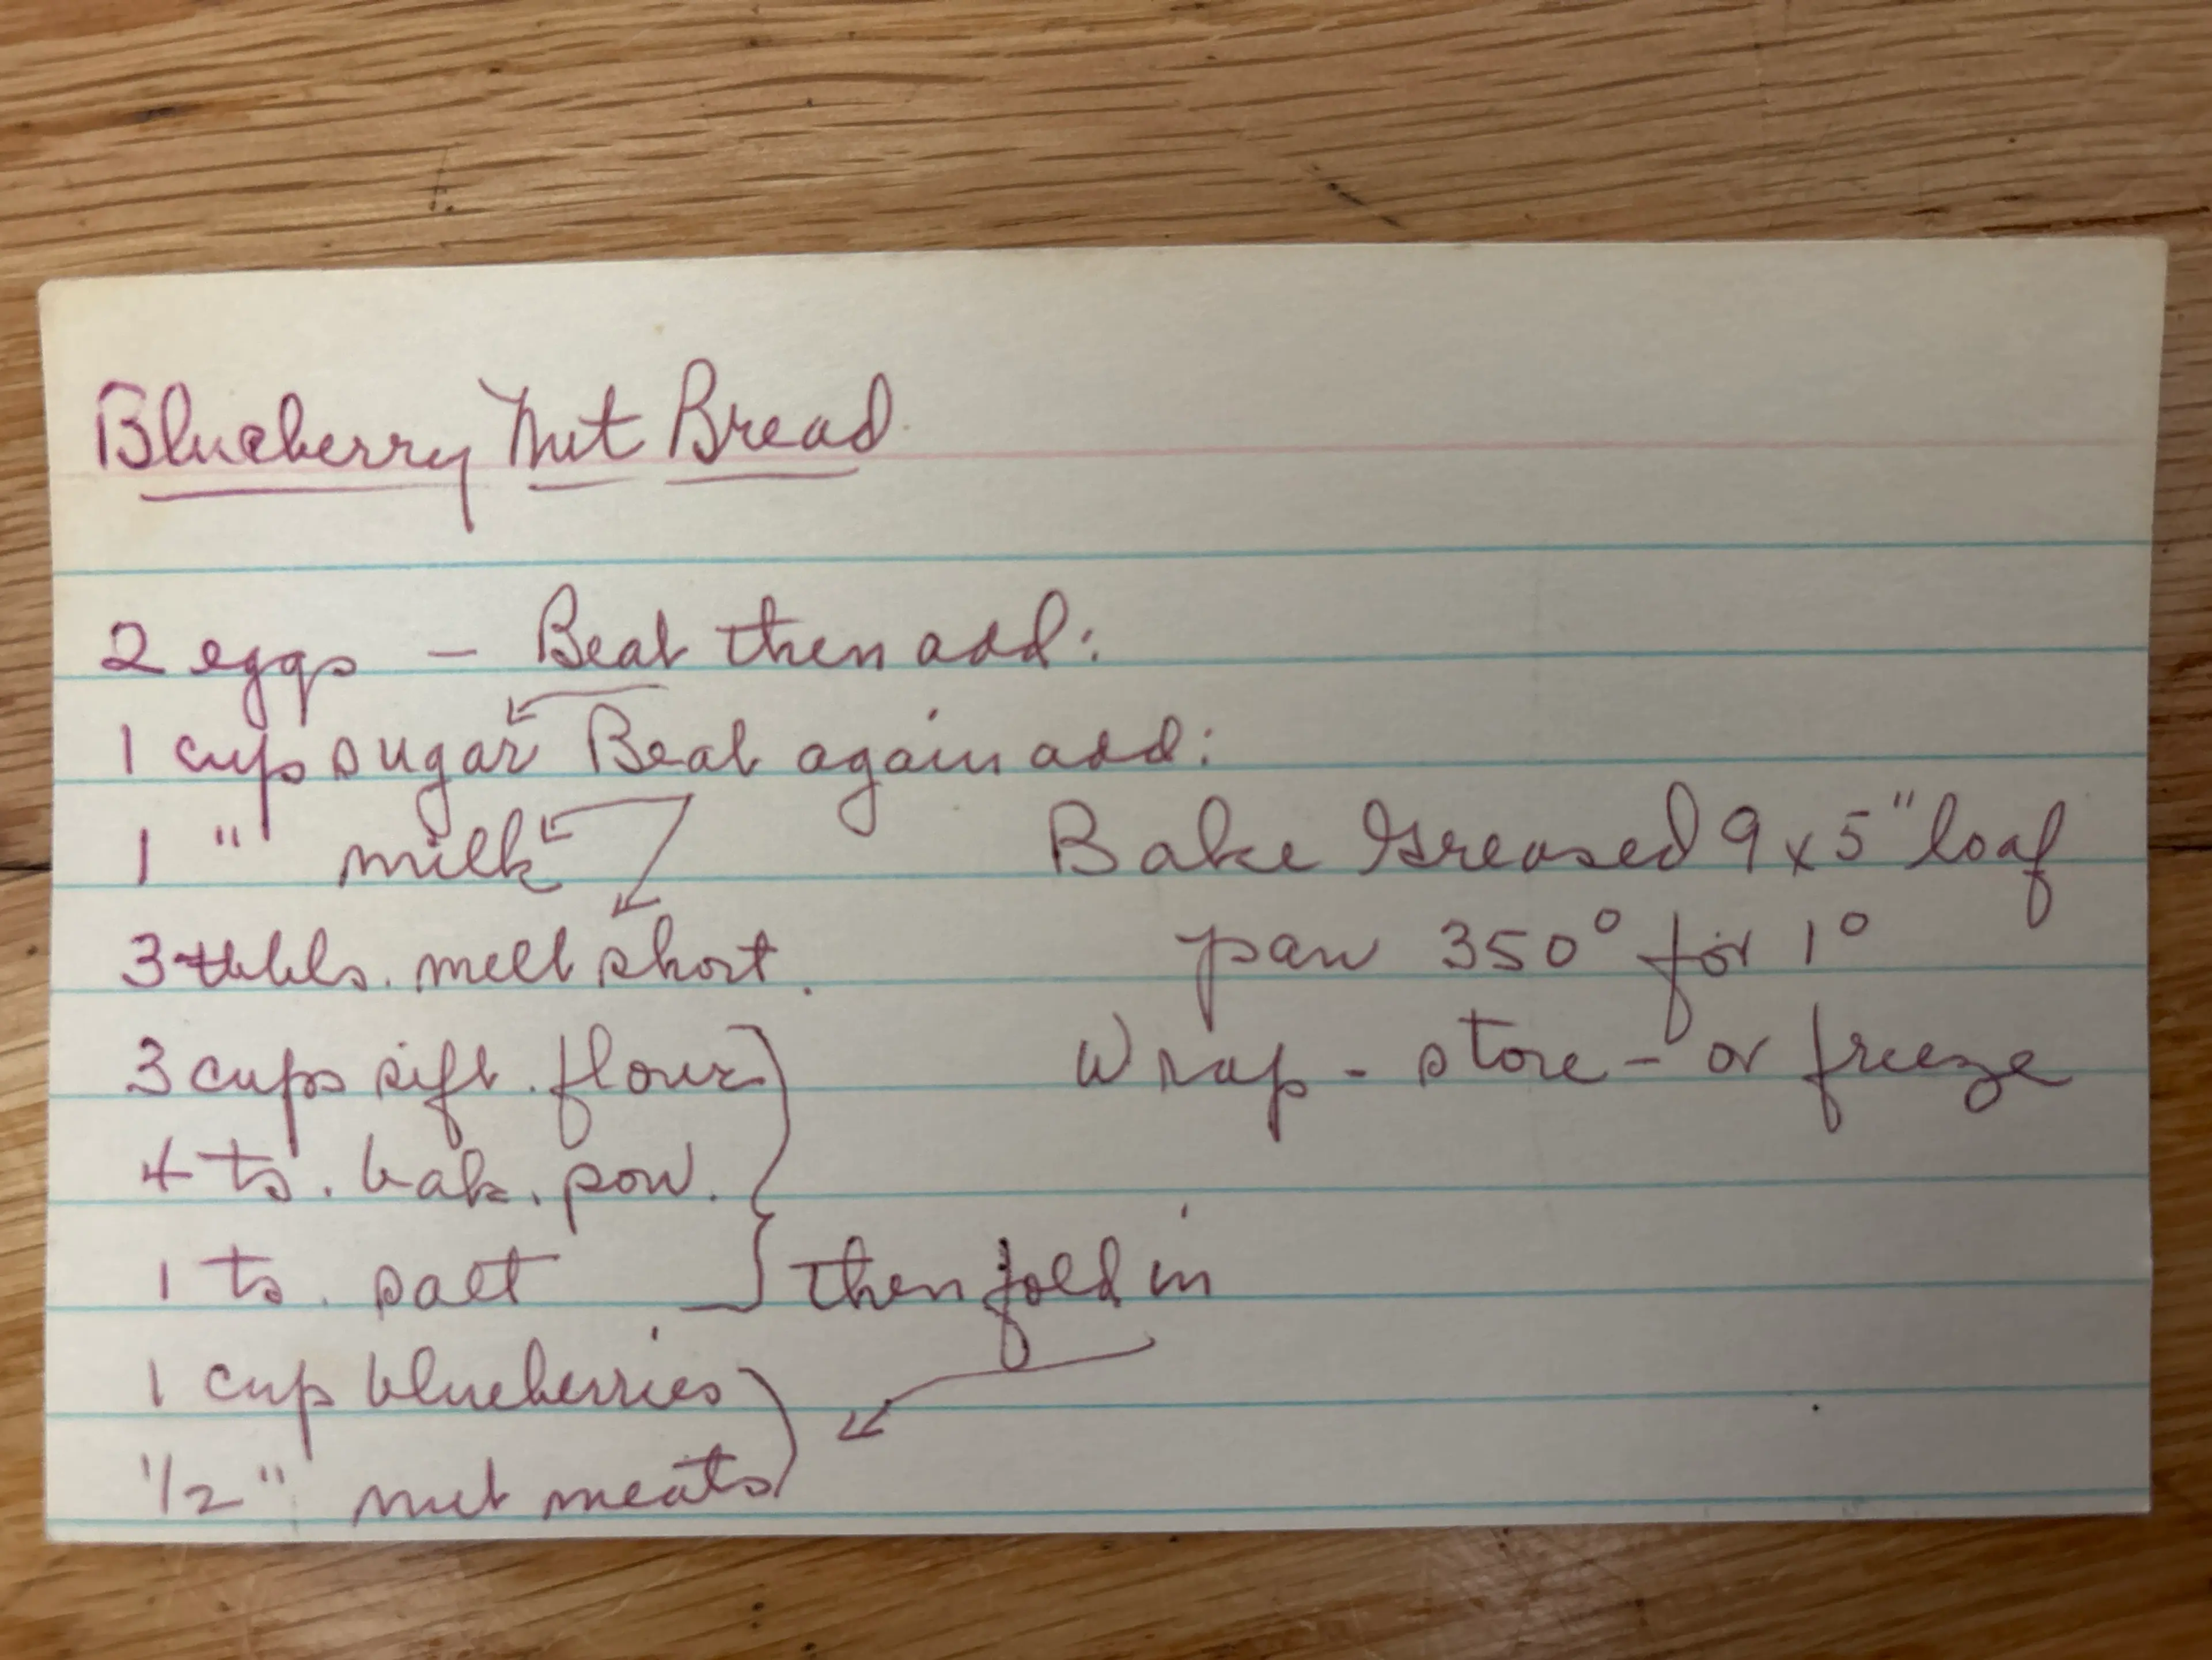 Blueberry Nut Bread
2 eggs – Beat then add:
1 cups sugar Beat again add:
1 " milk
3 tbls. melt short.
3 cups sift. flour
4 ts. bak. pow.
1 ts. salt then fold in
1 cup blueberries
1/2 " nut meats
Bake Greased 9 x 5" loaf
pan 350° for 1°
Wrap - store - or freeze